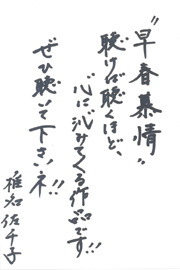 "早春慕情"
聴けば聴くほど、
心に沁みてくる作品です!!
ぜひ聴いて下さいネ!!
椎名佐千子